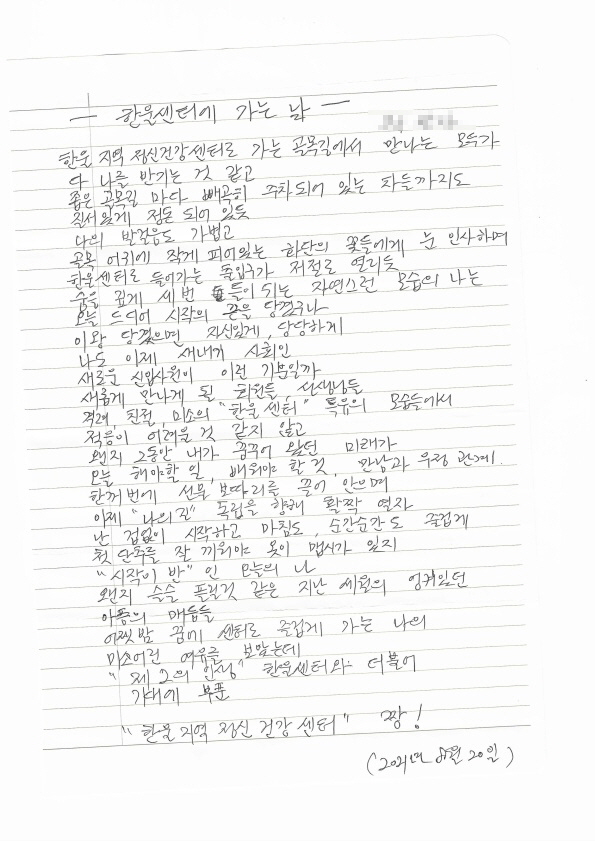 — 한울센터에 가는 날 —
한울 지역 정신건강센터로 가는 골목길에서 만나는 모두가
다 나를 반기는 것 같고
좁은 골목길 마다 빼곡히 주차되어 있는 차들까지도
질서있게 정돈 되어 있듯
나의 발걸음도 가볍고
골목 어귀에 작게 피어있는 화단의 꽃들에게 눈 인사하며
한울센터로 들어가는 출입구가 저절로 열리듯
숨을 깊게 세번 들이쉬는 자연스런 모습의 나는
오늘 드디어 시작의 끈을 당겼구나
이왕 당겼으면 자신있게, 당당하게
나도 이제 새내기 사회인
새로운 신입사원이 이런 기분일까
새롭게 만나게 될 회원들, 선생님들
격려, 친절, 미소의 "한울센터" 특유의 모습들에서
적응이 어려울 것 같지 않고
왠지 그동안 내가 꿈꾸어 왔던 미래가
오늘 해야할 일, 배워야 할 것, 만남과 우정 관계.
한꺼번에 선물 보따리를 끌어 안으며
이제 "나의 길" 독립을 향해 활짝 열자
난 겁없이 시작하고 마침도, 순간순간도 즐겁게
첫 단추를 잘 끼워야 옷이 맵시가 있지
"시작이 반" 인 오늘의 나
왠지 슬슬 풀릴것 같은 지난 세월의 엉켜있던
아픔의 매듭들
어젯밤 꿈에 센터로 즐겁게 가는 나의
미소어린 여유를 보았는데
"제 2의 인생" 한울센터와 더불어
기대에 부푼
"한울 지역 정신 건강 센터" 짱!
(2021년 월 20일)